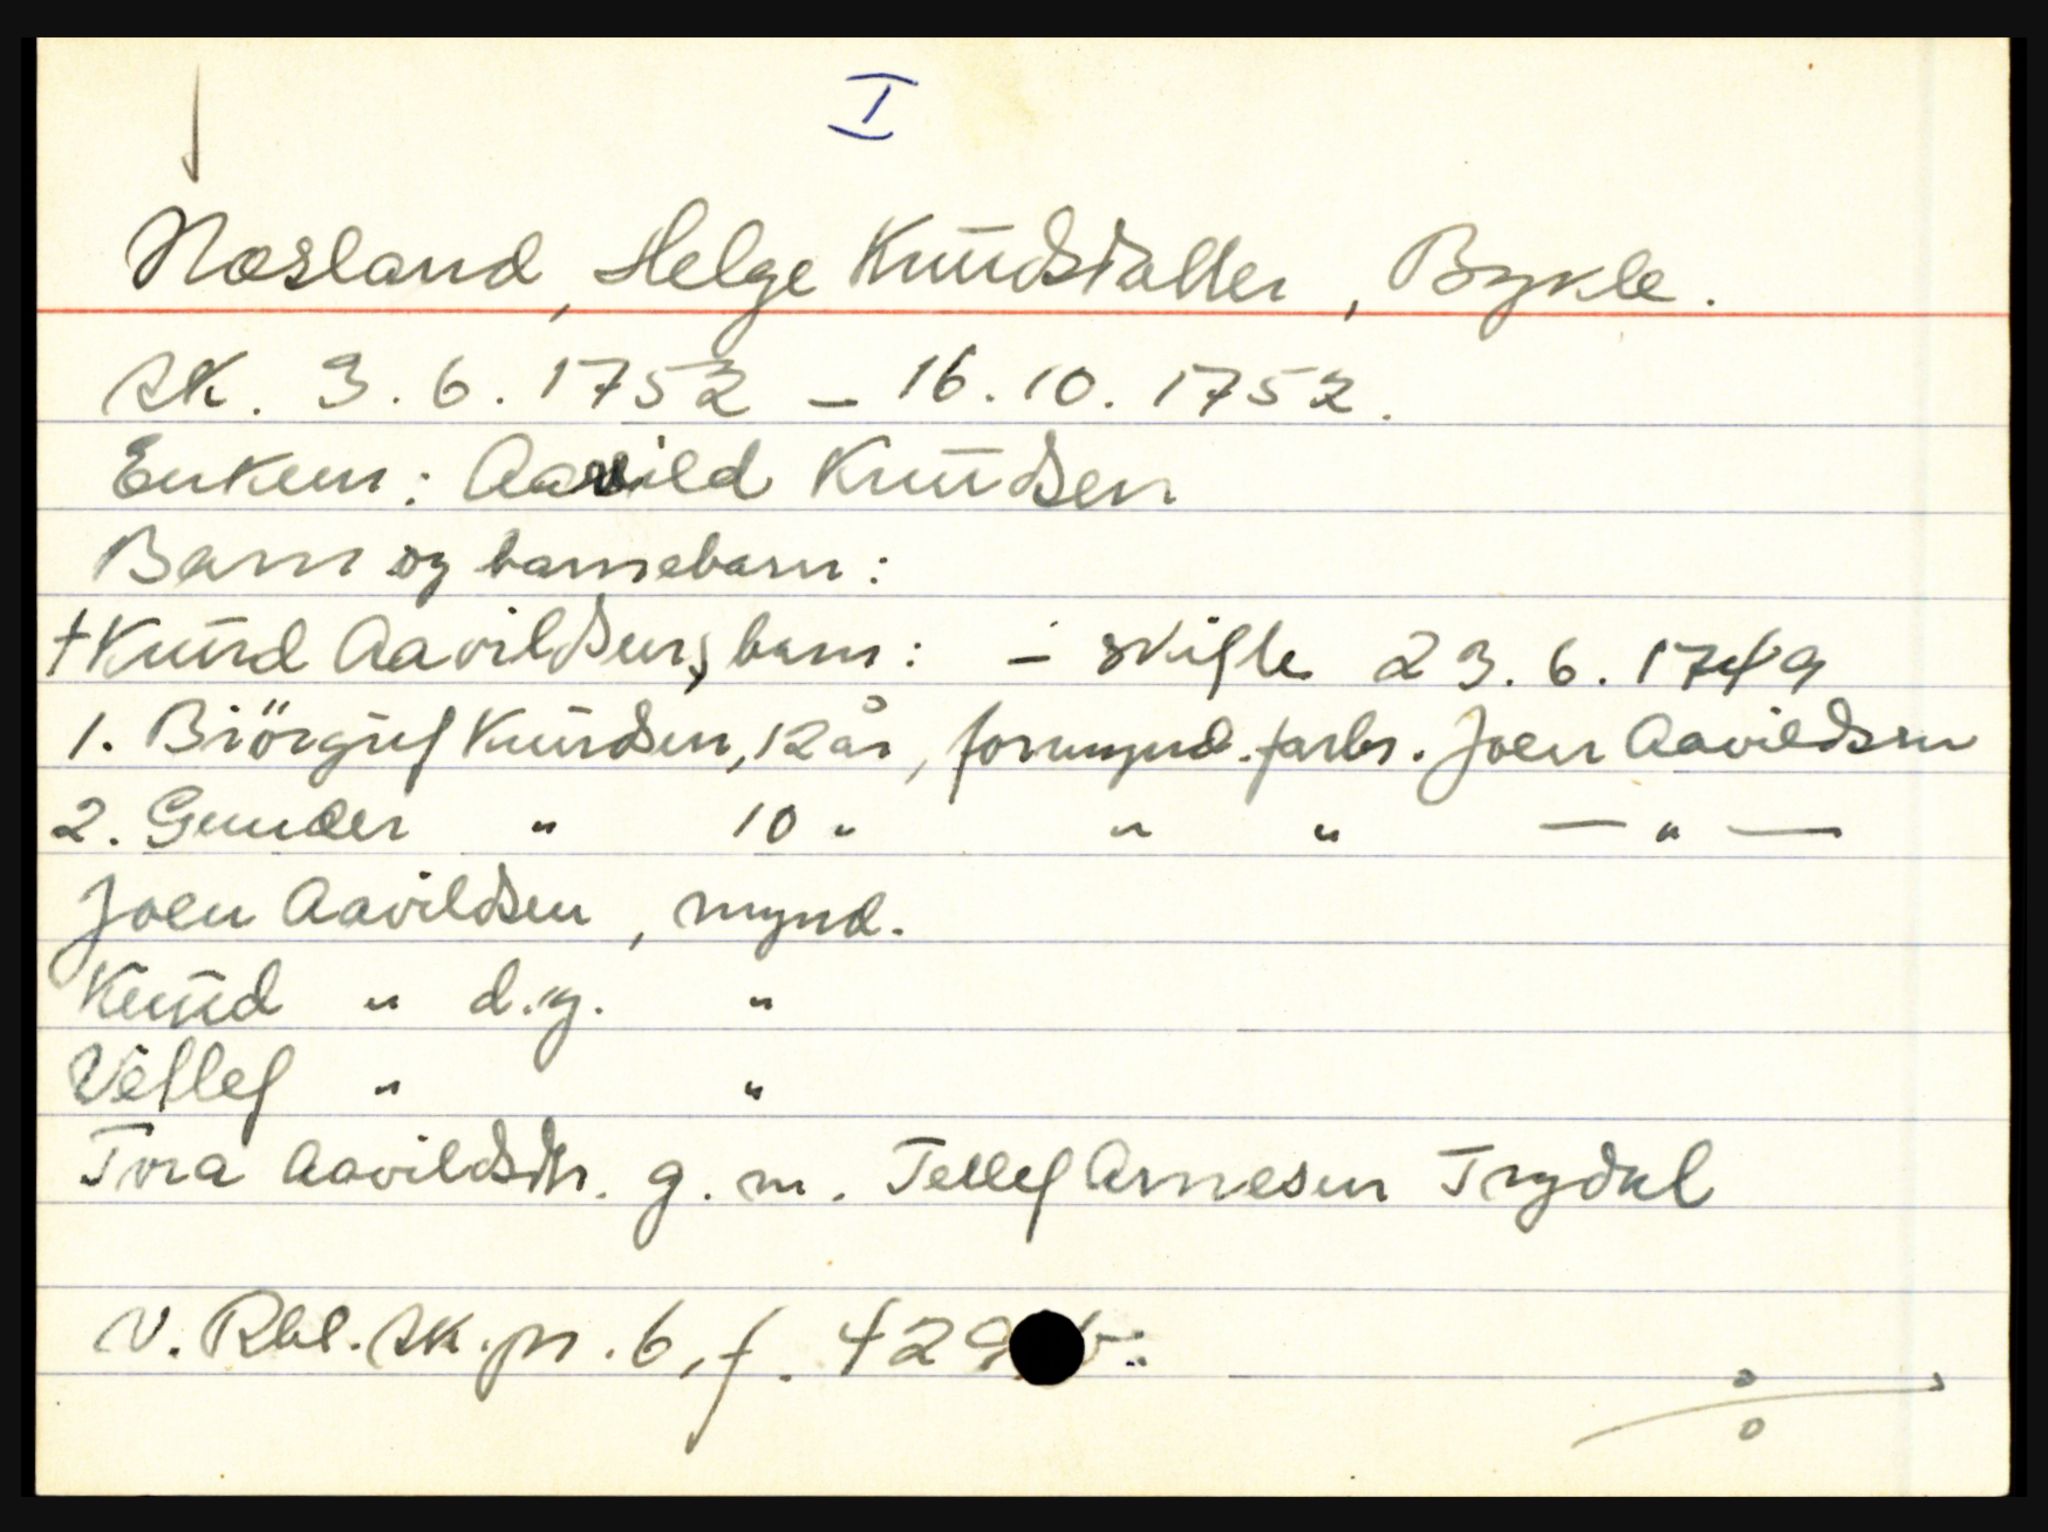 I
Næsland, Helge Knudsdatter, Bykle.
sk. 3.6.1752 – 16.10.1752.
Enkem: Aavild Knudsen
Barn og barnebarn:
†Knud Aavildsens barn: – skifte 23.6.1749
1. Biörguf Knudsen, 12 år, formynd. farbr. Joen Aavildsen
2. Gunder " 10 " " " — " —
Joen Aavildsen, mynd.
Knud " d.y. "
Vetlef " "
Tora Aavildsdtr. g. m. Tellef Arnesen Trydal
v. Rbl. sk. pr. 6, f. 429